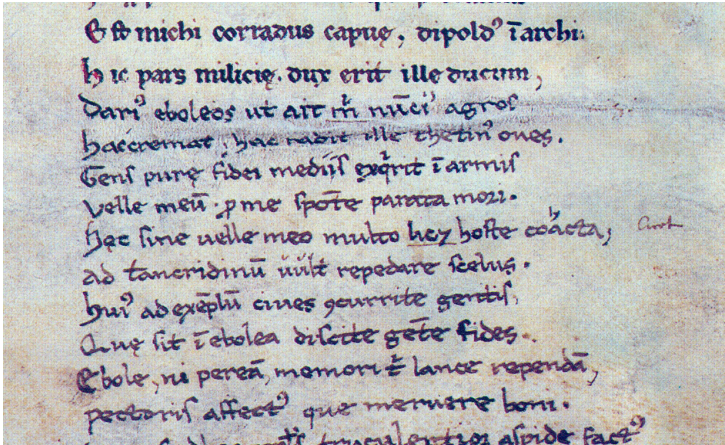 Est michi corradus capuę, dipoldꝰ ī archi.
hic pars milicię. dux erit ille ducum,
Dariꝰ eboleos ut ait m̄ nūciꝰ agros
hac cremat, hac radit ille thetinꝰ oues.
Gens purę fidei medijs exqͥrit ī armis
Velle meū. ꝓ me spōte parata mori.
hęc sine uelle meo multo hoste coacta,
ad tancridinū uult repedare scelus.
huiꝰ ad exēplū ciues ꝯcurrite gentis,
Quę sit ī ebolea discite gēte fides.
Ebole, ni pereā, memori t̄ lance rependā,
pectoris affectꝰ que meruere boni.
truculentior aspide factꝰ